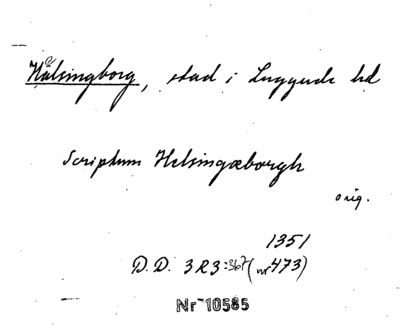 Hälsingborg, stad i Luggude hd
Scriptum Helsingæborgh
orig.
1351
D.D. 3R3:367 (nr 473)
Nr 10585